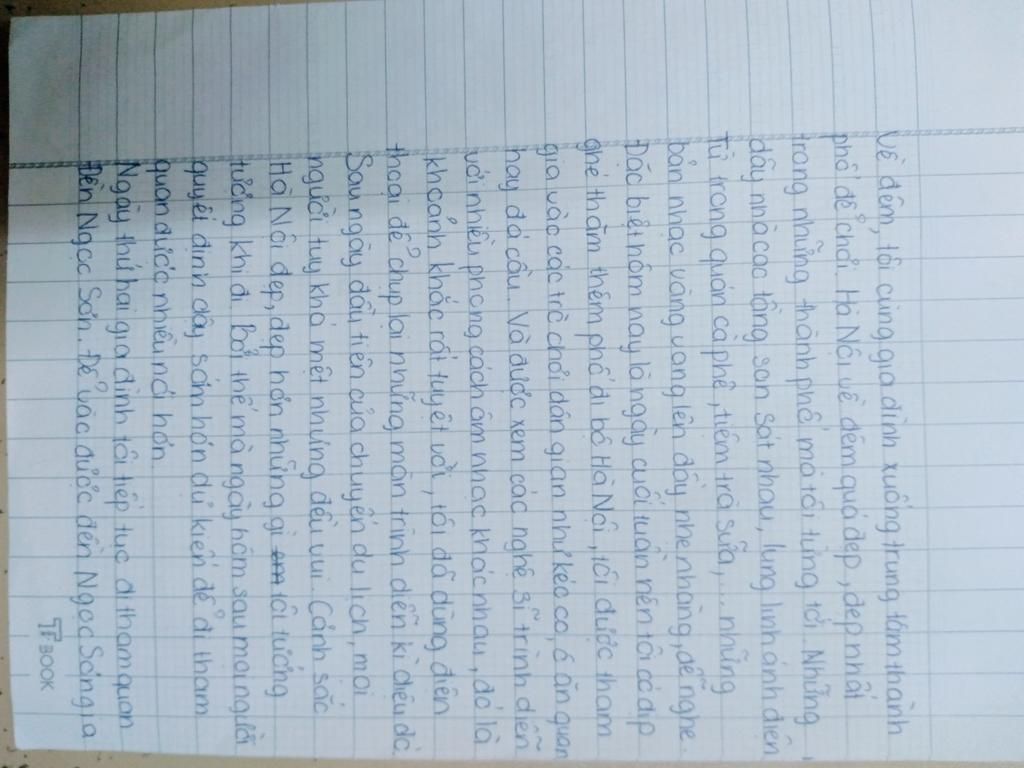 Về đêm, tôi cùng gia đình xuống trung tâm thành
phố để chơi. Hà Nội về đêm quá đẹp, đẹp nhất
trong những thành phố mà tôi từng tới. Những
dãy nhà cao tầng san sát nhau, lung linh ánh điện.
Từ trong quán cà phê, tiệm trà sữa,... những
bản nhạc vàng vang lên đầy nhẹ nhàng, dễ nghe.
Đặc biệt hôm nay là ngày cuối tuần nên tôi có dịp
ghé thăm thêm phố đi bộ Hà Nội, tôi được tham
gia vào các trò chơi dân gian như kéo co, ô ăn quan
hay đá cầu. Và được xem các nghệ sĩ trình diễn
với nhiều phong cách âm nhạc khác nhau, đó là
khoảnh khắc rất tuyệt vời, tôi đã dùng điện
thoại để chụp lại những màn trình diễn kì diệu đó.
Sau ngày đầu tiên của chuyến du lịch, mọi
người tuy khá mệt nhưng đều vui. Cảnh sắc
Hà Nội đẹp, đẹp hơn những gì tôi tưởng
tượng khi đi. Bởi thế mà ngày hôm sau mọi người
quyết định dậy sớm hơn dự kiến để đi tham
quan được nhiều nơi hơn.
Ngày thứ hai gia đình tôi tiếp tục đi tham quan
Đền Ngọc Sơn. Để vào được đền Ngọc Sơn gia
TP BOOK